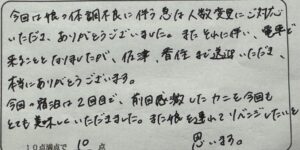 今回は娘の体調不良に伴う急な人数変更にご対応
いただき、ありがとうございました。またそれに伴い、電車で
来ることとなりましたが、佐津、香住まで送迎いただき、
本当にありがとうございます。
今回の宿泊は2回目で、前回感激したカニを今回も
とても美味しくいただきました。また娘を連れてリベンジしたいと
思います。
10点満点で 10 点